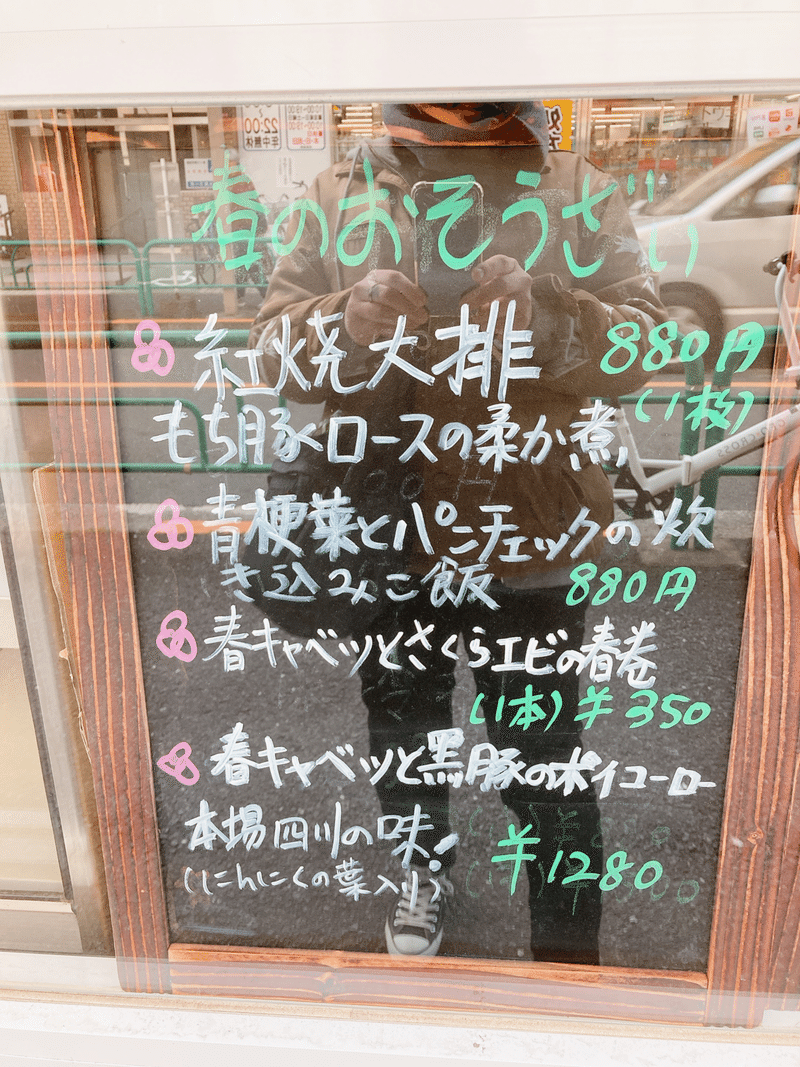 春のおそうざい
紅焼大排 880円
(1枚)
もち豚ロースの柔か煮
青梗葉とパンチェックの炊
き込みご飯 880円
春キャベツとさくらエビの春巻
(1本) ¥350
春キャベツと黒豚のホイコーロー
本場四川の味!
(にんにくの葉入り) ¥1280
22:00
年中無休